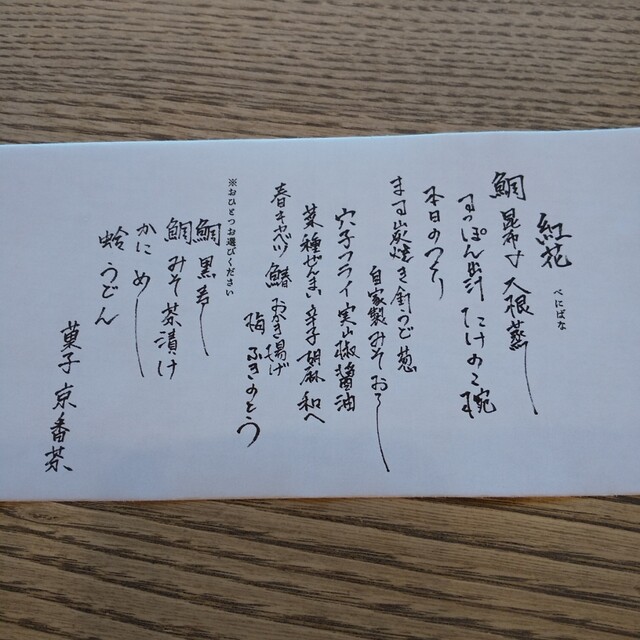 紅花
べにばな
鯛昆布〆 大根蒸し
すっぽん出汁 たけのこ椀
本日のつくり
まる炭焼き 針うど 葱
自家製みそおろし
穴子フライ 実山椒醤油
菜種ぜんまい 辛子胡麻和へ
春キャベツ 鰆 おかき揚げ
梅 ふきのとう
※おひとつお選びください
鯛黒寿し
鯛みそ茶漬け
かにめし
蛤うどん
菓子 京番茶